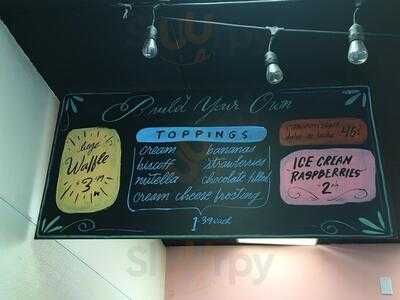 Build Your Own
large
Waffle
3.49
TOPPINGS
cream bananas
biscoff strawberries
nutella chocolate filled
cream cheese frosting
1.39 each
45¢
ICE CREAM
RASPBERRIES
2
Sluurpy